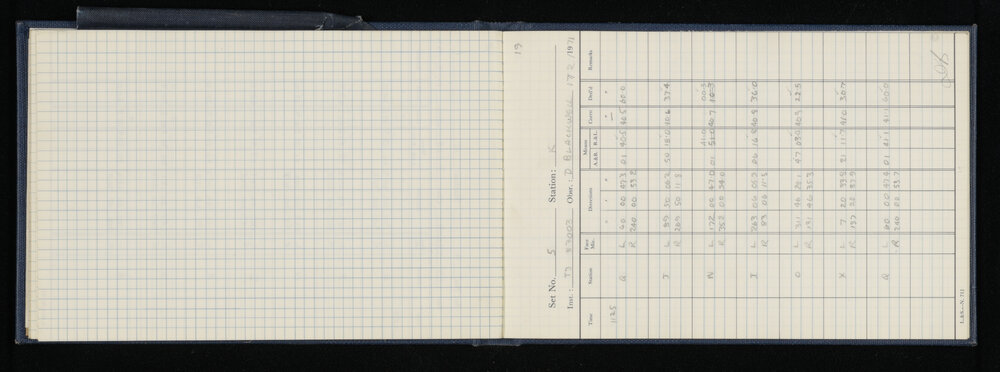 19
Set No. 5 Station: K
Inst.: Obsr.: D BLACKWELL 17 2 1971
Time Station Face Mic. Directions Means Corrn Ded'd Remarks
A.&B. R.&L.
° ' " " "
1125 Q L 60 00 47.3 01 40.5 40.5 00.0
R 240 00 53.2
J L 89 50 06.2 50 18.0 40.6 37.4
R 269 50 11.8
N L 172 00 47.0 01 40.7
R 352 00 54.0
I L 263 06 05.2 06 16.8 40.8 36.0
R 83 06 11.5
O L 311 46 47 03.4 40.9 22.5
R 131 46 35.3
X L 7 20 21 11.7 41.0 30.7
R
Q L 60 00 47.4 01 41.1 41.1 00.0
R 240 00 53.7
L.&S.—N. 711